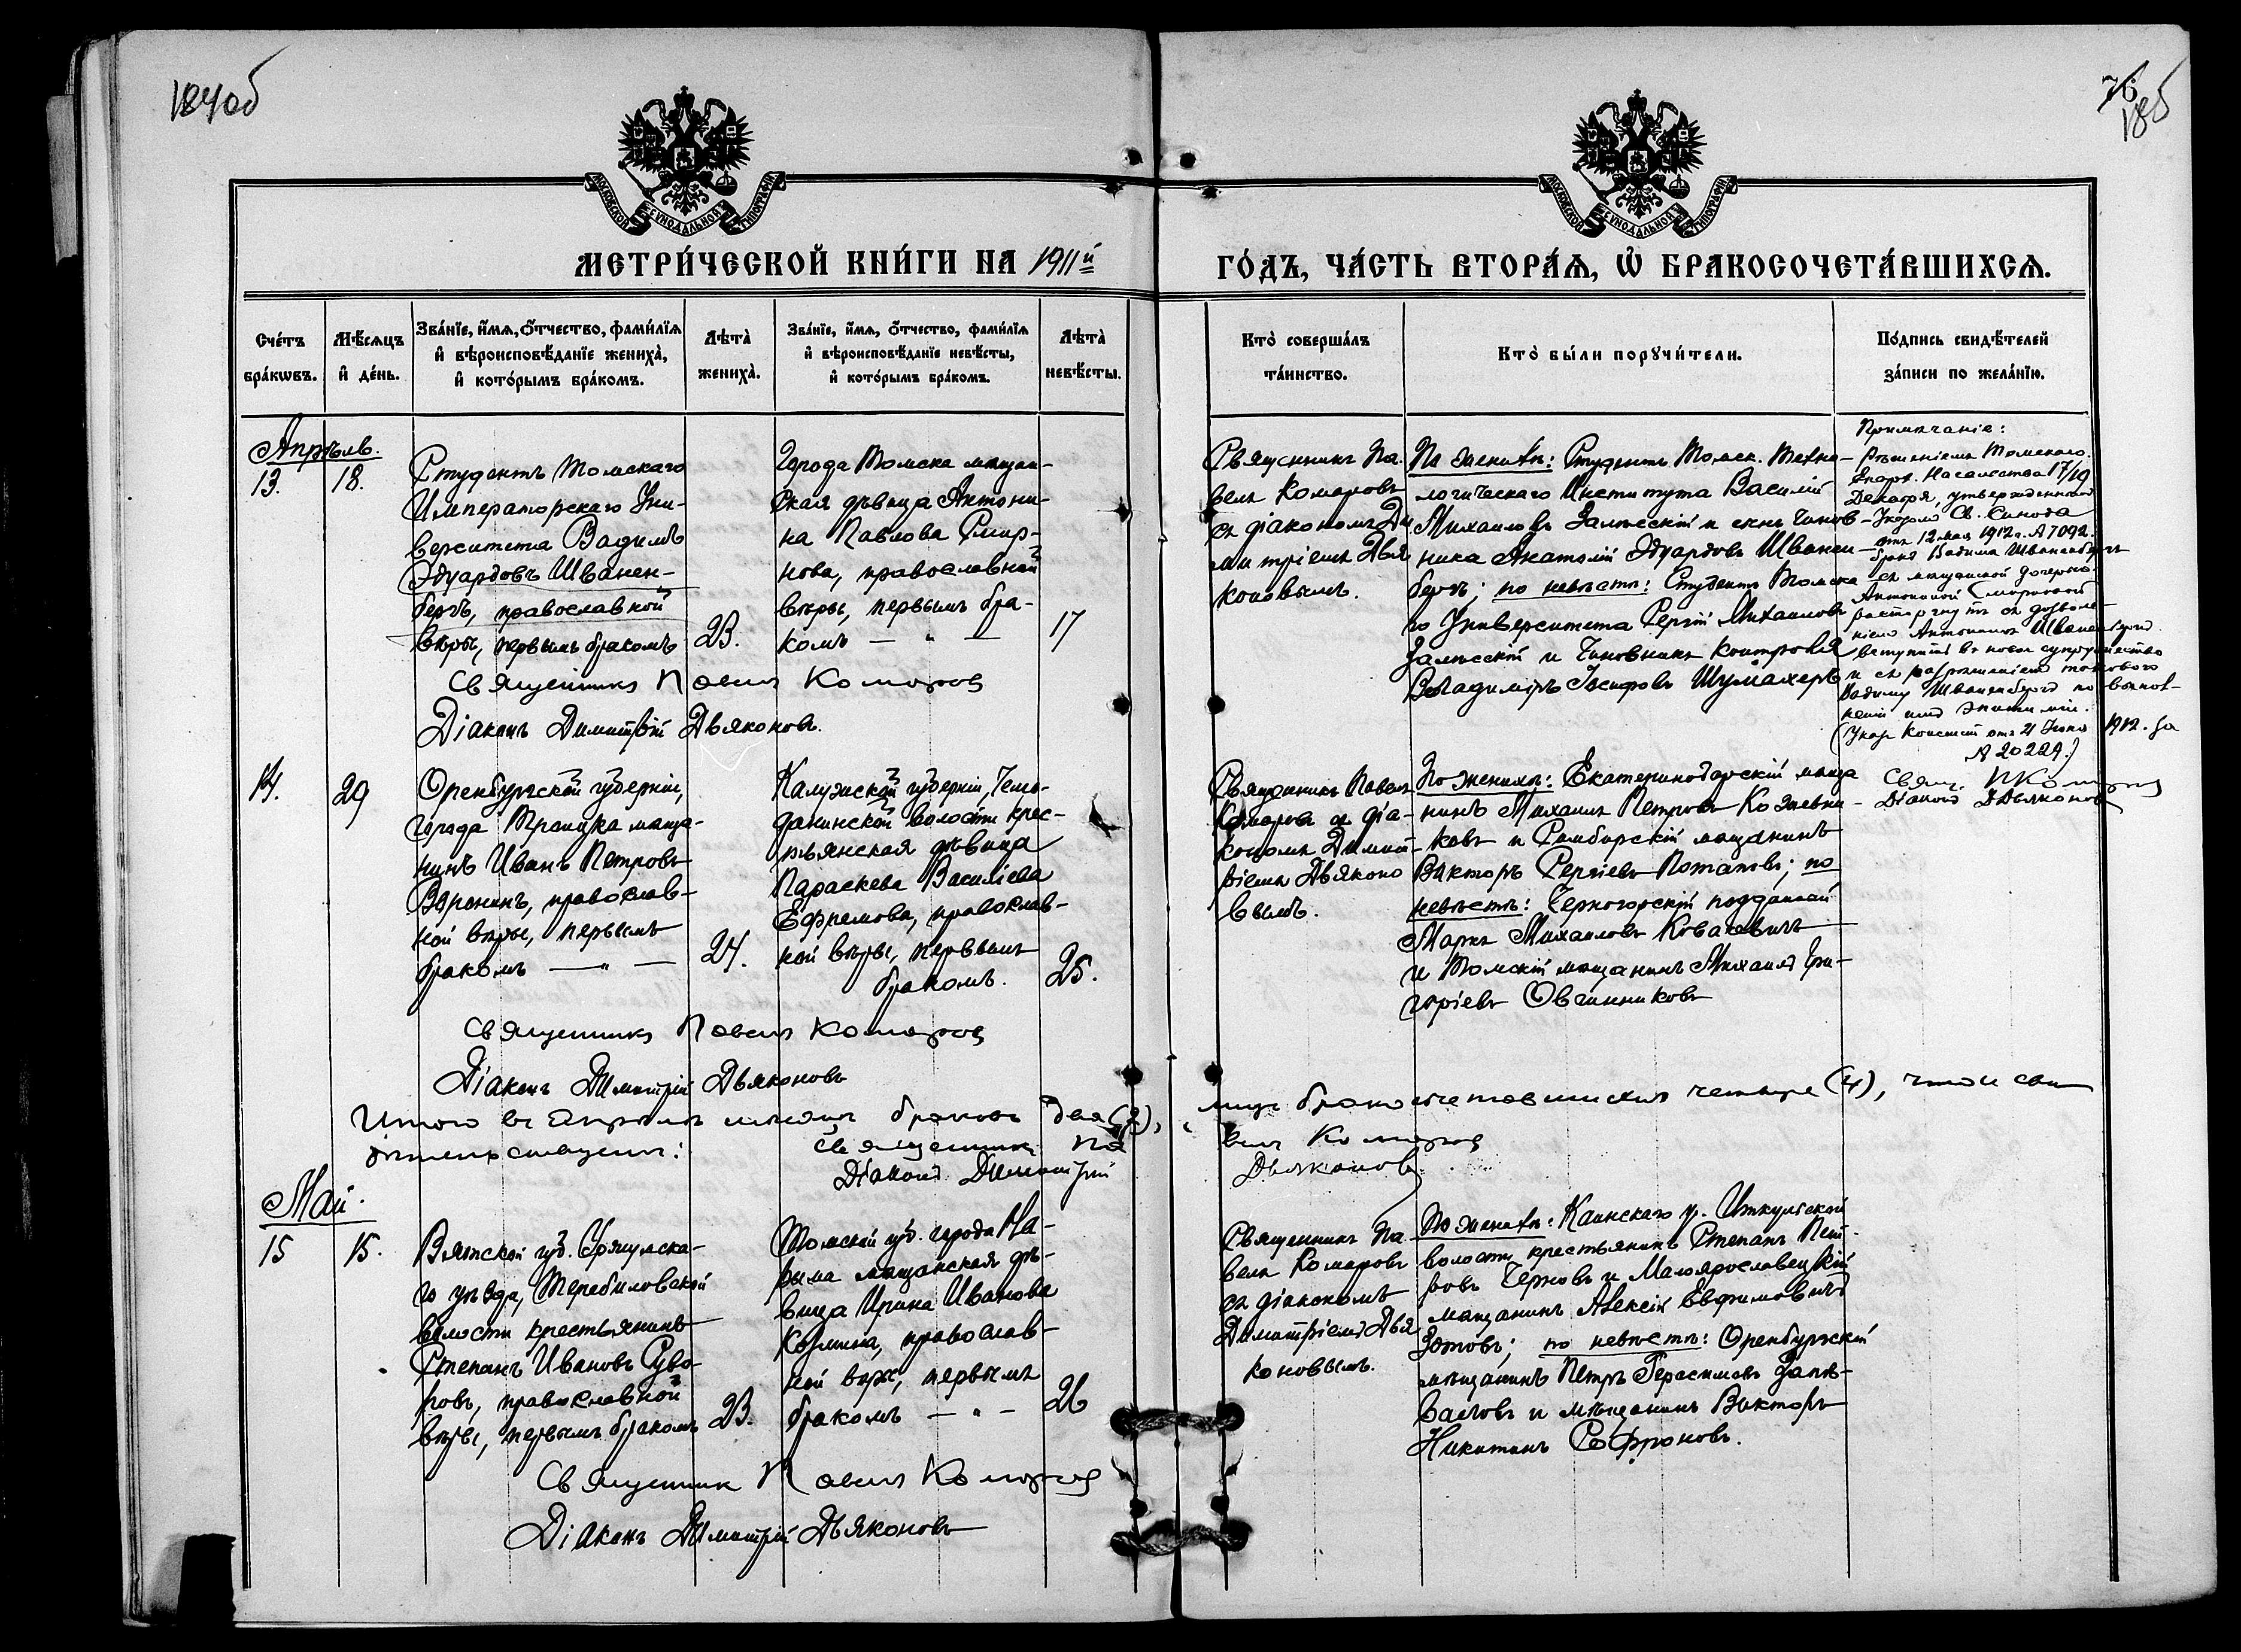 184об
76
185
МОСКОВСКОЙ СѴНОДАЛЬНОЙ ТИПОГРАФІИ
МОСКОВСКОЙ СѴНОДАЛЬНОЙ ТИПОГРАФІИ
МЕТРИ́ЧЕСКОЙ КНИ́ГИ НА 1911й
ГО́ДЪ, ЧА́СТЬ ВТОРА́Ѧ, Ѡ҆ БРАКОСОЧЕТА́ВШИХСѦ.
Сче́тъ
бра́кѡвъ.
Мѣ́сѧцъ
и҆ де́нь.
Зва́нїе, и҆́мѧ, о҆́тчество, фами́лїѧ
и҆ вѣроисповѣ́данїе жениха̀,
и҆ кото́рымъ бра́комъ.
Лѣта̀
жениха̀.
Зва́нїе, и҆́мѧ, о҆́тчество, фами́лїѧ
и҆ вѣроисповѣ́данїе невѣ́сты,
и҆ кото́рымъ бра́комъ.
Лѣта̀
невѣ́сты.
Кто̀ соверша́лъ
та́инство.
Кто̀ бы́ли порꙋчи́тели.
По́дпись свидѣ́телей
за́писи по жела́нїю.
Апрѣль.
13.
18.
Студентъ Томскаго
Императорскаго Уни-
верситета Вадимъ
Эдуардовъ Шванен-
бергъ, православной
вѣры, первымъ бракомъ
23.
Города Томска мѣщан-
ская дѣвица Антони-
на Павлова Смир-
нова, православной
вѣры, первымъ бра-
комъ — " —
17
Священникъ Па-
велъ Комаровъ
съ діакономъ Ди-
митріемъ Дья
коновымъ.
По женихѣ: Студентъ Томск. Техно-
логическаго Института Василій
Михаиловъ Залѣсскій и сынъ Чинов-
ника Анатолій Эдуардовъ Шванен-
бергъ; по невѣстѣ: Студентъ Томска
го Университета Сергій Михаиловъ
Залѣсскій и Чиновникъ контроля
Владиміръ Іосифовъ Шумахеръ
Примѣчаніе:
Рѣшеніемъ Томскаго
Епарх. Начальства 17/19
Декабря, утвержденнымъ
Указомъ Св. Синода
отъ 12 мая 1912 г. № 7092
бракъ Вадима Шваненбергъ
съ мѣщанской дочерью
Антониной Смирновой
расторгнутъ съ дозволе-
ніемъ Антонинѣ Шваненбергъ
вступить въ новое супружество
и съ разрѣшеніемъ такового
Вадиму Шваненбергъ по выпол-
неніи имъ эпитиміи.
(Указ Консист. отъ 21 Іюня 1912. за
№ 20229.)
Свящ. ПКомаровъ
Діаконъ ДДьяконовъ
Священникъ Павелъ Комаровъ
Діаконъ Димитрій Дьяконовъ.
14.
29
Оренбургской губерніи,
города Троицка мѣща-
нинъ Иванъ Петровъ
Воронинъ, православ-
ной вѣры, первымъ
бракомъ — " —
24.
Калужской губерніи,
волости крес-
тьянская дѣвица
Параскева Василіева
Ефремова, православ-
ной вѣры, первымъ
бракомъ.
25.
Священникъ Павелъ
Комаровъ съ діа-
кономъ Димит-
ріемъ Дьяконо
вымъ.
По женихѣ: Екатеринодарскій мѣща
нинъ Михаилъ Петровъ Кожевни-
ковъ и Симбирскій мѣщанинъ
Викторъ Сергіевъ Потаповъ; по
невѣстѣ: Черногорскій подданный
Марко Михаиловъ Ковачевичъ
и Томскій мѣщанинъ Михаилъ Гри-
горіевъ Овчинниковъ
Священникъ Павелъ Комаровъ
Діаконъ Димитрій Дьяконовъ
Итого въ Апрѣлѣ мѣсяцѣ браковъ два (2), лицъ бракосочетавшихся четыре (4), что и сви
дѣтельствуемъ: Священникъ Па велъ Комаровъ
Діаконъ Димитрій Дьяконовъ.
Май.
15
15.
Вятской губ. Уржумска-
го уѣзда, Теребиловской
волости крестьянинъ
Степанъ Ивановъ Суво-
ровъ, православной
вѣры, первымъ бракомъ
23.
Томской губ. города На-
рыма мѣщанская дѣ-
вица Ирина Иванова
Козмина, православ-
ной вѣры, первымъ
бракомъ — " —
26
Священникъ Па-
велъ Комаровъ
съ діакономъ
Димитріемъ Дья
коновымъ.
По женихѣ: Каинскаго у. Иткульской
волости крестьянинъ Степанъ Пет-
ровъ Черновъ и Малоярославецкій
мѣщанинъ Алексій Евфимовичъ
Зотовъ; по невѣстѣ: Оренбургскій
мѣщанинъ Петръ Герасимовъ
и мѣщанинъ Викторъ
Никитинъ Софроновъ.
Священникъ Павелъ Комаровъ
Діаконъ Димитрій Дьяконовъ